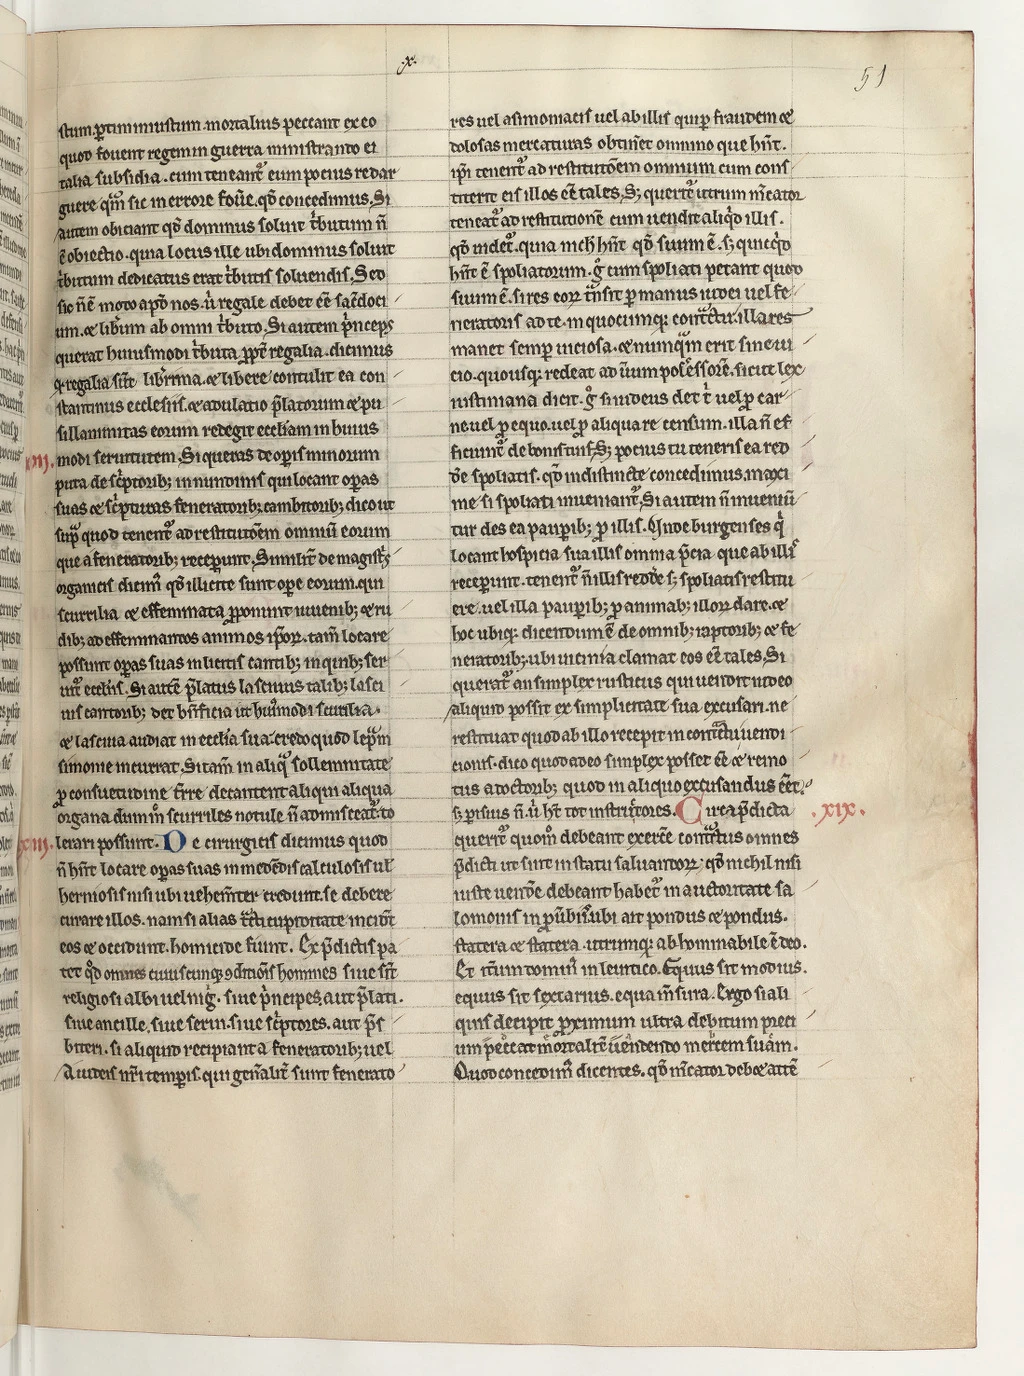 .x.
51
stum. ꝑtim iniustum. mortalius peccant ex eo
quod fouent regem in guerra ministrando ei
talia subsidia. cum teneant᷑ eum pocius redar
guere qm̄ sic in errore fou̅e. qd̕ concedimus. Si
autem obiciant qd̕ dominus soluit t̕butum n̄
ē obiectio. quia locus ille ubi dominus soluit
t̕butum dedicatus erat t̕butis soluendis. Sed
sic n̄ ē modo apd̕ nos. u̕ regale debet eē sac̕doci
um. ⁊ lib̕um ab omni t̕buto. Si autem p̕nceps
querat huiusmodi t̕buta ꝓpt̕ regalia. dicimus
ꝙ regalia sūt lib̕rima. ⁊ libere contulit ea con
stantinus ecclesiis. ⁊ adulatio p̄latorum ⁊ pu
sillanimitas eorum redegit eccl̕iam in huius
modi seruitutem. Si queras de oꝑis minorum
puta de sc̕ptorib; in nundinis qui locant oꝑas
suas ⁊ sc̕pturas feneratorib; cambitorib; dico ut
sup̕ quod tenent᷑ ad restitutōem omniū eorum
que a feneratorib; receperunt. Similit̕ de magist̕s
organicis dicim᷒ qd̕ illicite sunt oꝑe eorum. qui
scurrilia ⁊ effeminata ꝓponunt iuuenib; ⁊ ru
dib; ad effeminantos animos ip̄or̄. tam̄ locare
possunt oꝑas suas in licitis cantib; in quib; ser
uit᷑ eccl̕iis. Si autē p̄latus lasciuus talib; lasci
uis cantorib; det b̄n̄ficia ut hui᷒modi scurilia
⁊ lasciua audiat in eccl̕ia sua. credo quod lep̄m
simonie incurrat. Si tam̄ in aliq̕ sollemnitate
ꝓ consuetudine t̕rre decantent aliqui aliqua
organa dum m̊ scurriles notule n̄ admisceāt᷑. to
.xiij. lerari possunt. De cirurgicis dicimus quod
n̄ hn̄t locare oꝑas suas in medēdis calculosis ul̕
herniosis nisi ubi uehem̄ter credunt se debere
curare illos. nam si alias t̄c̄ti cupiditate incidūt
eos ⁊ occidunt. homicide fiunt. Ex p̄dictis pa
tet qd̕ omnes cuiuscunq; ↄditiōis homines siue sīt
religiosi albi uel nig̕. siue p̕ncipes aut p̄lati.
siue ancille. siue serui. siue sc̕ptores. aut p̄s
biteri. si aliquid recipiant a feneratorib; uel
A iudeis nr̄i temꝑis. qui gen̄alit̕ sunt fenerato
res uel a simoniacis uel ab illis qui ꝑ fraudem ⁊
dolosas mercaturas obtin̄et omnino que hn̄t.
ip̄i tenent᷑ ad restitutōem omnium cum cons
titerit eis illos eē tales. S; querit᷑ utrum m̄cator
teneat᷑ ad restitutionē cum uendit aliq̕d illis.
qd̕ uidet᷑. quia nich̄ hn̄t qd̕ suum ē. s; quicq̕d
hn̄t ē spoliatorum. g̊ cum spoliati petant quod
suum ē. si res eor̄ t̕nsit ꝑ manus iudei uel fe
neratoris ad te. in quocumq; cont̕ctu. illa res
manet semꝑ uiciosa. ⁊ numq̕m erit sine ui
cio. quousq; redeat ad uūm possessorē. sicut lex
iustiniana dicit. g̊ si iudeus det t̕ uel ꝓ car
ne uel ꝓ equo. uel ꝓ aliqua re censum. illa n̄ ef
ficiunt᷑ de bonis tuis. S; pocius tu teneris ea red
de̕ spoliatis. qd̕ indistincte concedimus. maxi
me si spoliati inueniant᷑. Si autem n̄ inueniū
tur des ea pauꝑib; ꝓ illis. Unde burgenses q̕
locant hospicia sua illis omnia p̄cia que ab illi᷒
receperunt. tenent᷑ n̄ illis redde̕ s; spoliatis restitu
ere. uel illa pauꝑib; ꝓ animab; illor̄ dare. ⁊
hoc ubiq; dicendum ē de omnib; raptorib; ⁊ fe
neratorib; ubi uicinia clamat eos eē tales. Si
querat᷑ an simplex rusticus qui uendit iudeo
aliquid possit ex simplicitate sua excusari. ne
restituat quod ab illo recepit in cont̕ctu uendi
cionis. dico quod adeo simplex posset eē ⁊ remo
tus a doctorib; quod in aliquo excusandus eēt.
s; ꝑisius n̄. u̕ h̄t tot instru̕tores. Circa p̄dicta .xix.
querit᷑ quom̊ debeant exerce̕ cont̕ctus omnes
p̄dicti ut sint in statu saluandor̄. qd̕ nichil nisi
iuste uende̕ debeant habet᷑ in auctoritate sa
lomonis in ꝓūbiis. ubi ait pondus ⁊ pondus.
statera ⁊ statera. utrumq; abhominabile ē deo.
Et it̕um domin᷒ in leuitico. Equus sit modius.
equus sit sextarius. equa m̄sura. Ergo si ali
quis decipit ꝓximum ultra debitum preci
um peccat mortalit̕ uendendo mercem suam.
Quod concedim᷒ dicentes. qd̕ m̄cator debet atte̕